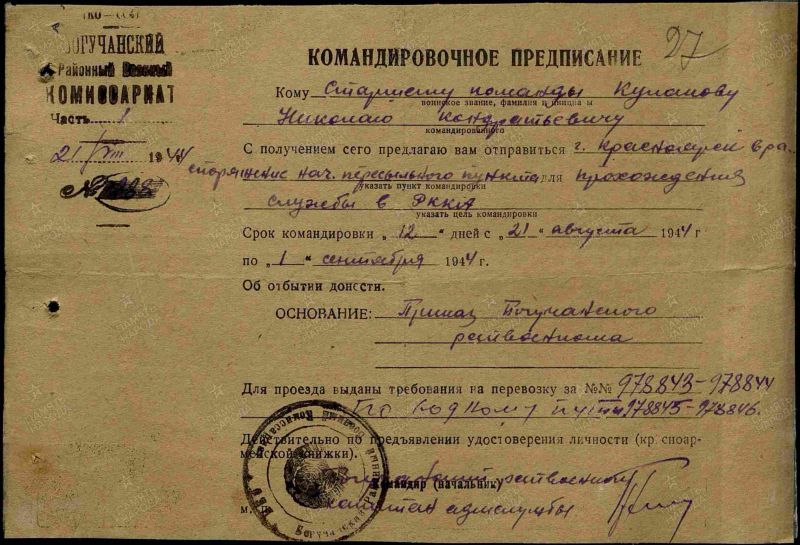 НКО — СССР
БОГУЧАНСКИЙ
Районный Военный
КОМИССАРИАТ
Часть 1
21/VIII 1944
№
27
КОМАНДИРОВОЧНОЕ ПРЕДПИСАНИЕ
Кому Старшему команды Куланову
воинское звание, фамилия и инициа ы
Николаю Кондратьевичу
командированного
С получением сего предлагаю вам отправиться г. Красноярск в ра-
споряжение нач. пересыльного пункта для прохождения
указать пункт командировки
службы в РККА
указать цель командировки
Срок командировки „12" дней с „21" августа 1944 г
по „1" сентября 1944 г.
Об отбытии донести.
ОСНОВАНИЕ: Приказ Богучанского
райвоенкома
Для проезда выданы требования на перевозку за №№ 978843-978844
По водному пути 978845-978846.
Действительно по предъявлении удостоверения личности (кр сноар-
мейской книжки).
Богучанский райвоенком
Командир (начальник)
м.
капитан адмслужбы